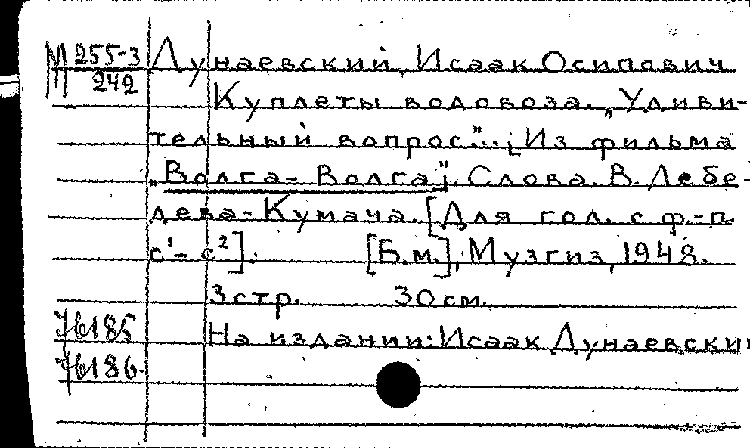 М 255-3 Дунаевский, Исаак Осипович
242
Куплеты водовоза. „Удиви-
тельный вопрос"... [Из фильма
„Волга-Волга"]. Слова В. Лебе-
дева-Кумача. [Для гол. с ф.-п.
c¹ - c²]. [Б.м.], Музгиз, 1948.
3 стр. 30 см.
На издании: Исаак Дунаевский